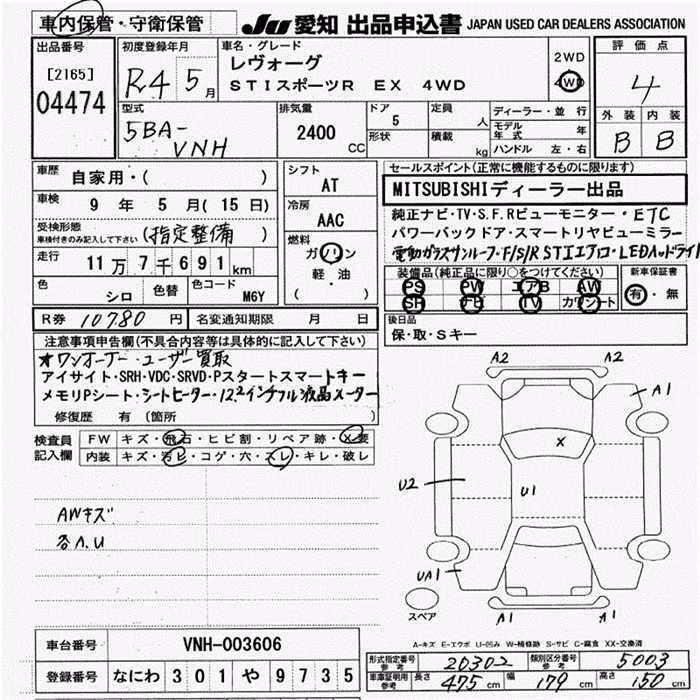 車内保管・守衛保管
JU 愛知 出品申込書 JAPAN USED CAR DEALERS ASSOCIATION
出品番号
[2165]
04474
初度登録年月
R4 5月
車名・グレード
レヴォーグ
STIスポーツR EX 4WD
2WD
4WD
評価点
4
外装 内装
B B
型式
5BA-
VNH
排気量
2400
CC
ドア
5
形状
定員
人
積載
kg
ディーラー・並行
モデル年式 年
ハンドル 左・右
車歴
自家用・( )
車検
9 年 5 月( 15 日)
受検形態
車検付きのみ記入して下さい
(指定整備)
走行
11万7千691km
色
シロ
色替
色コード
M6Y
シフト
AT
冷房
AAC
燃料
ガソリン
軽・油
( )
R券 10780 円
名変通知期限 月 日
セールスポイント(正常に機能するものに限ります)
MITSUBISHIディーラー出品
純正ナビ・TV・S.F.Rビューモニター・ETC
パワーバックドア・スマートリヤビューミラー
電動ガラスサンルーフ・F/S/R STIエアロ・LEDヘッドライト
装備品(純正品に限り○をつけてください)
PS PW エアB AW
SR ナビ TV カワシート
新車保証書
有・無
後日品
保・取・Sキー
注意事項申告欄(不具合内容等は具体的に記入して下さい)
★ワンオーナー・ユーザー買取
アイサイト・SRH・VDC・SRVD・Pスタートスマートキー
メモリPシート・シートヒーター・12.2インチフル液晶メーター
修復歴 有 (箇所
検査員
記入欄
FW キズ・飛石・ヒビ割・リペア跡・X要
内装 キズ・汚ヒ・コゲ・穴・スレ・キレ・破レ
AWキズ
各A.U
A2 A2
A1
X
U2
U1
UA1
A1 A1
スペア
A-キズ E-エクボ U-凹み W-補修跡 S-サビ C-腐食 XX-交換済
車台番号 VNH-003606
登録番号 なにわ 301 や 9735
形式指定番号
参考
20302
類別区分番号
参考
5003
車庫証明用
参考
長さ 475 cm 幅 179 cm 高さ 150 cm